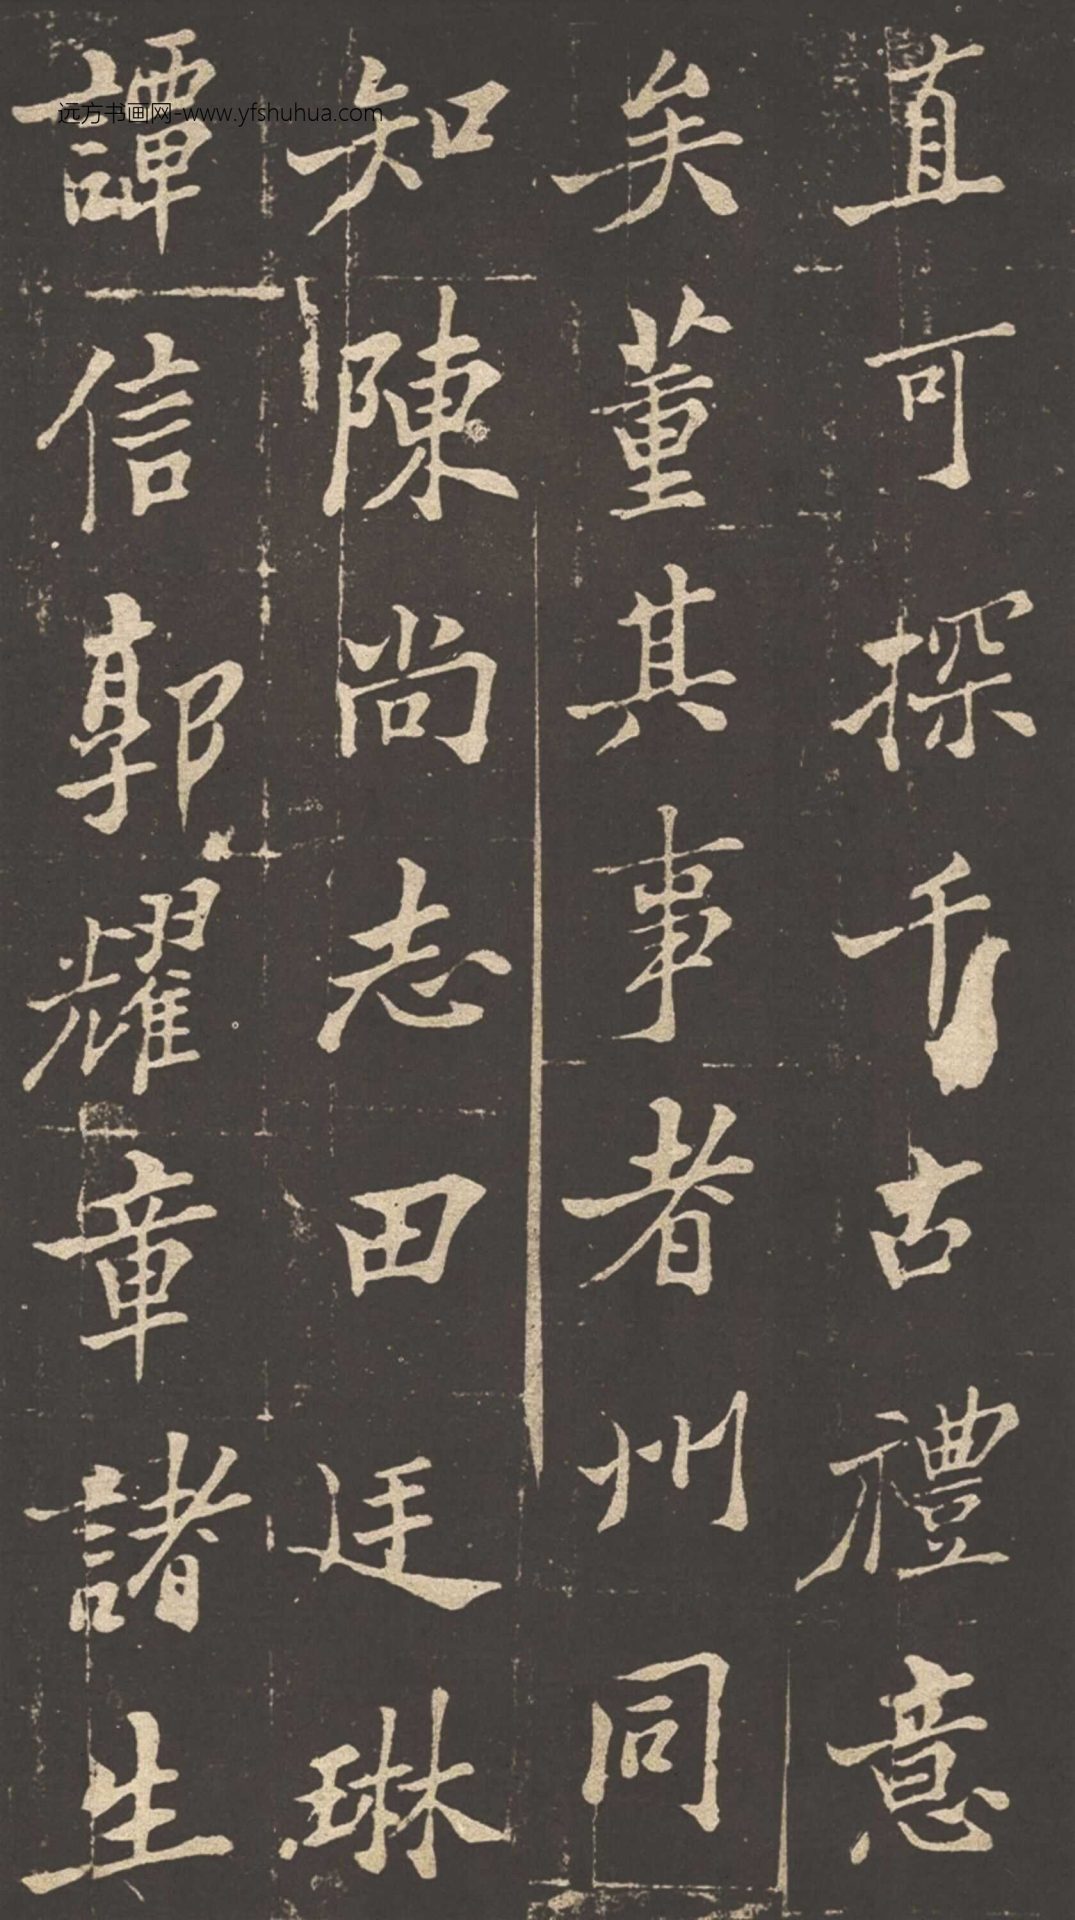 直可探千古禮意
矣董其事者州同
知陳尚志田廷琳
譚信郭耀章諸生
远方书画网-www.yfshuhua.com